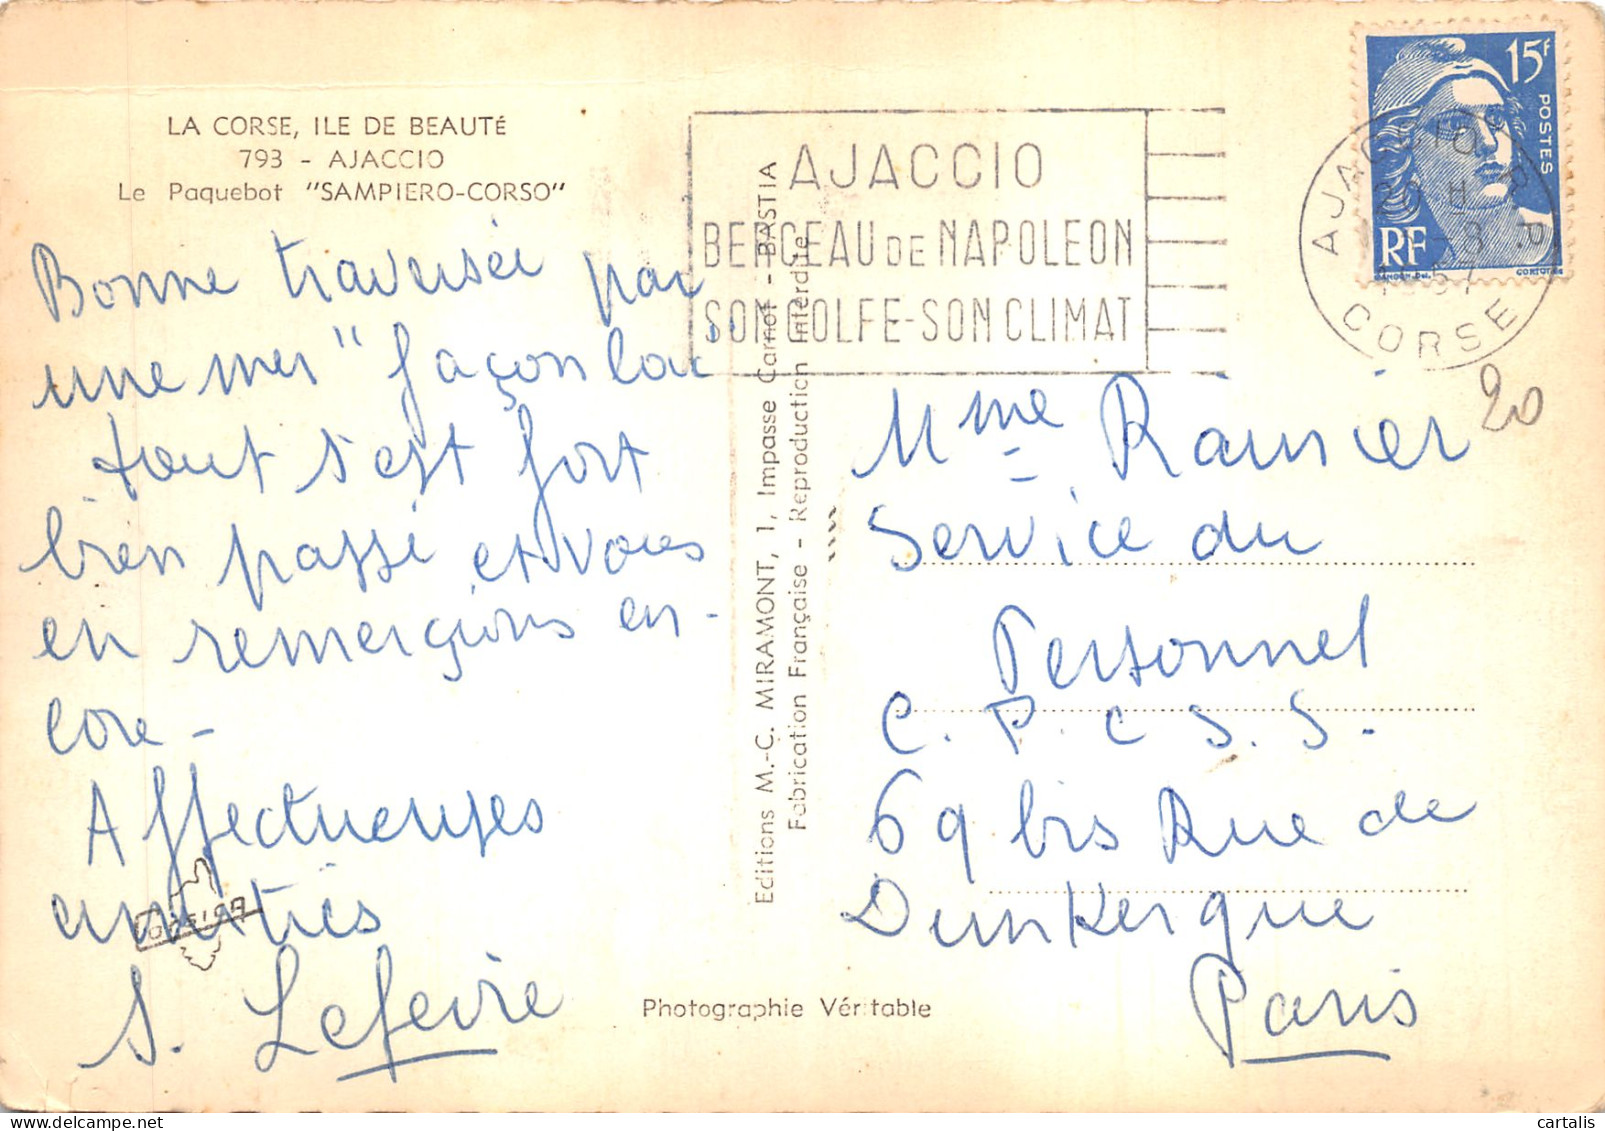 LA CORSE, ILE DE BEAUTÉ
793 - AJACCIO
Le Paquebot "SAMPIERO-CORSO"
Bonne traversée par
une mer "façon lac"
tout s'est fort
bien passé et vous
en remerçions en-
core -
Affectueuses
amitiés
S. Lefevre
Editions M.-C. MIRAMONT, 1, Impasse Carnot - BASTIA
Fabrication Française - Reproduction interdite
Photographie Véritable
AJACCIO
BERCEAU DE NAPOLEON
SON GOLFE-SON CLIMAT
15F
POSTES
RF
GANDON Del.
CORTOT Sc
AJACCIO R.P.
20 H
-8
57
CORSE
20
Mme Ranier
Service du
Personnel
C. P. C. S. S.
69 bis Rue de
Dunkerque
Paris
cartalis